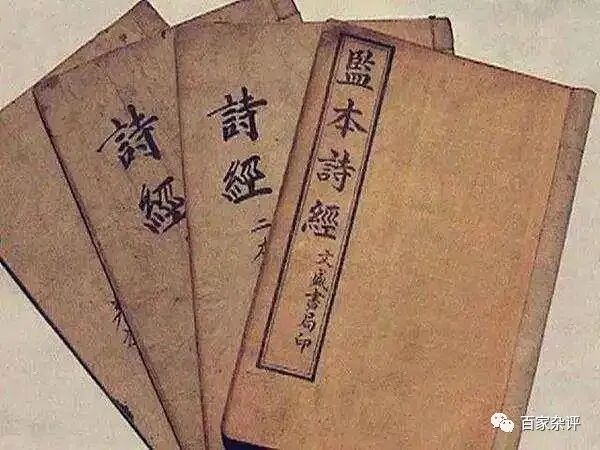 監本詩經
文盛書局印
詩經
二本
詩經
百家杂评